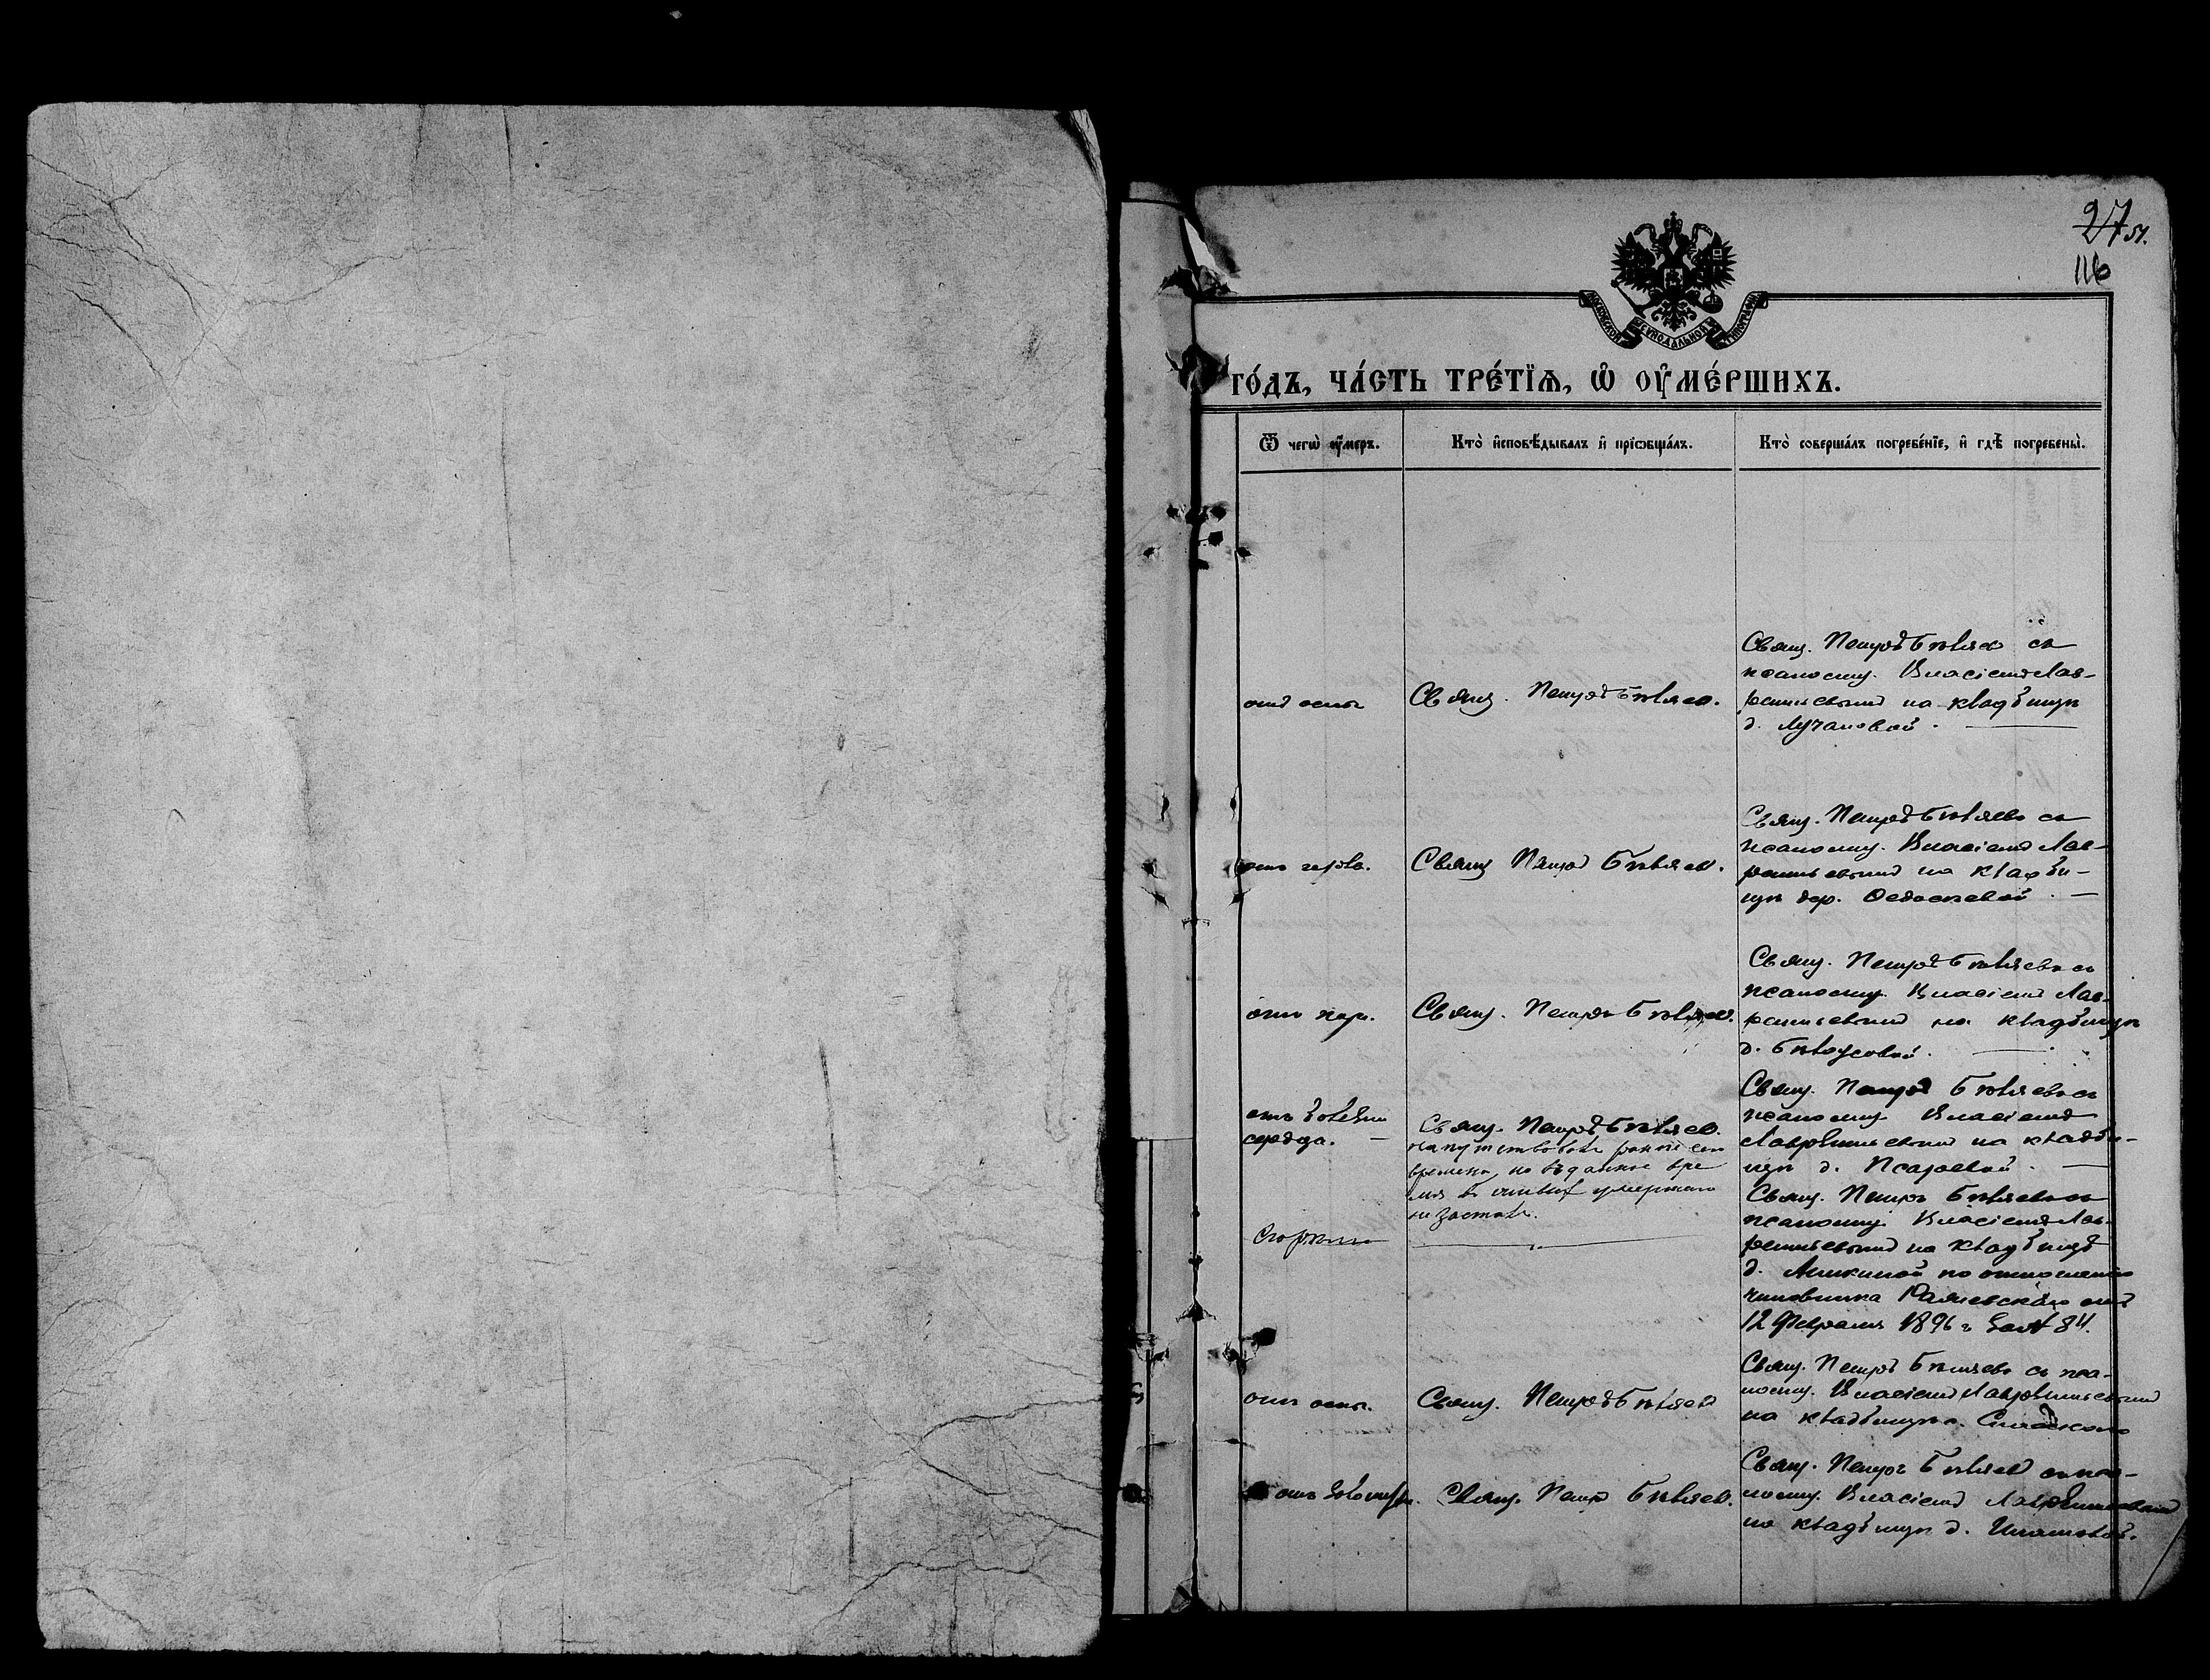 27 51.
116
МОСКОВСКОЙ СѴНОДАЛЬНОЙ ТИПОГРАФІИ
ГО́ДЪ, ЧА́СТЬ ТРЕ́ТЇѦ, Ѡ҆ ОУ҆МЕ́РШИХЪ.
Ѿ чегѡ̀ оу҆́меръ.
Кто̀ и҆сповѣ́дывалъ и҆ прїѡбща́лъ.
Кто̀ соверша́лъ погребе́нїе, и҆ гдѣ̀ погребены̀.
отъ оспы
Свящ. Петръ Бѣляев.
Свящ. Петръ Бѣляев съ
псаломщ. Власіемъ Лав-
рентьевымъ на кладбищѣ
д. Лучановой.
отъ
Свящ Петръ Бѣляев.
Свящ. Петръ Бѣляевъ съ
псаломщ. Власіемъ Лав-
рентьевымъ на кладби-
щѣ дер. Федосѣевой.
отъ
Свящ. Петръ Бѣляев.
Свящ. Петръ Бѣляевъ съ
псаломщ. Власіемъ Лав-
рентьевымъ на кладбищѣ
д. Бѣлоусовой.
отъ болѣзни
сердца.
Свящ. Петръ Бѣляев.
напутствовалъ ранѣе сего
времени, но въ данное вре
мя въ живыхъ умершаго
не засталъ.
Свящ. Петръ Бѣляевъ съ
псаломщ. Власіемъ
Лаврентьевымъ на кладби-
щѣ д. Писаревой.
Сгорѣли
Свящ. Петръ Бѣляевъ съ
псаломщ. Власіемъ Лав-
рентьевымъ на кладбищѣ
д. Аникиной по отношенію
чиновника Раевскаго отъ
12 Февраля 1896 г за № 84.
отъ оспы.
Свящ. Петръ Бѣляев
Свящ. Петръ Бѣляевъ съ пса-
ломщ. Власіемъ Лаврентьевымъ
на кладбищѣ с. Спасскаго
отъ
Свящ. Петръ Бѣляев.
Свящ. Петръ Бѣляев съ пса-
ломщ. Власіемъ Лаврентьевымъ
на кладбищѣ д. Ипатовой.